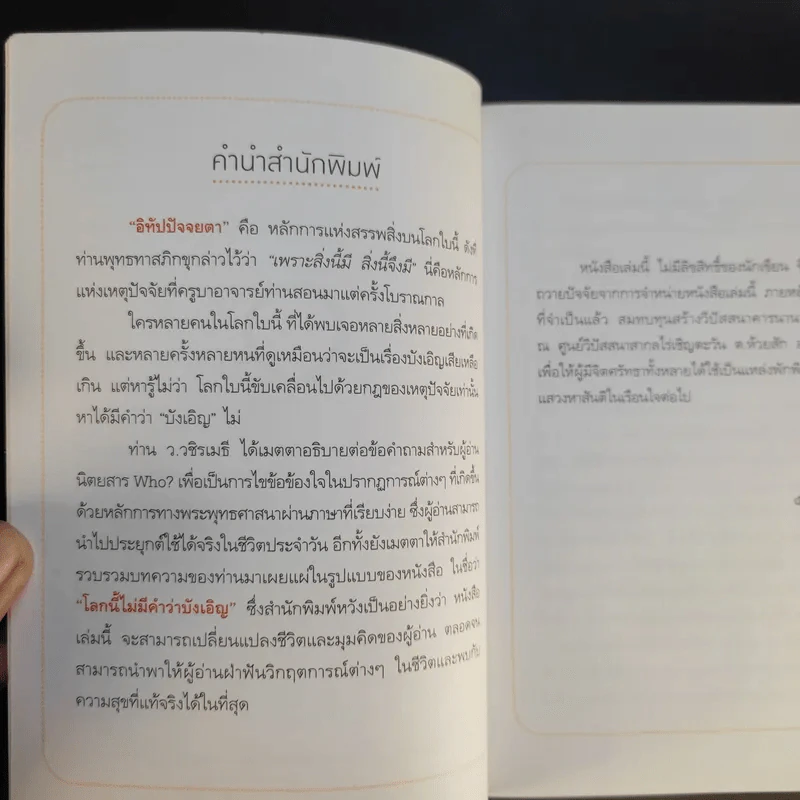 คำนำสำนักพิมพ์
“อิทัปปัจจยตา” คือ หลักการแห่งสรรพสิ่งบนโลกใบนี้ ดังที่
ท่านพุทธทาสภิกขุกล่าวไว้ว่า “เพราะสิ่งนี้มี สิ่งนี้จึงมี” นี่คือหลักการ
แห่งเหตุปัจจัยที่ครูบาอาจารย์ท่านสอนมาแต่ครั้งโบราณกาล
ใครหลายคนในโลกใบนี้ ที่ได้พบเจอหลายสิ่งหลายอย่างที่เกิด
ขึ้น และหลายครั้งหลายหนที่ดูเหมือนว่าจะเป็นเรื่องบังเอิญเสียเหลือ
เกิน แต่หารู้ไม่ว่า โลกใบนี้ขับเคลื่อนไปด้วยกฎของเหตุปัจจัยเท่านั้น
หาได้มีคำว่า “บังเอิญ” ไม่
ท่าน ว.วชิรเมธี ได้เมตตาอธิบายต่อข้อคำถามสำหรับผู้อ่าน
นิตยสาร Who? เพื่อเป็นการไขข้อข้องใจในปรากฏการณ์ต่างๆ ที่เกิดขึ้น
ด้วยหลักการทางพระพุทธศาสนาผ่านภาษาที่เรียบง่าย ซึ่งผู้อ่านสามารถ
นำไปประยุกต์ใช้ได้จริงในชีวิตประจำวัน อีกทั้งยังเมตตาให้สำนักพิมพ์
รวบรวมบทความของท่านมาเผยแผ่ในรูปแบบของหนังสือ ในชื่อว่า
“โลกนี้ไม่มีคำว่าบังเอิญ” ซึ่งสำนักพิมพ์หวังเป็นอย่างยิ่งว่า หนังสือ
เล่มนี้ จะสามารถเปลี่ยนแปลงชีวิตและมุมคิดของผู้อ่าน ตลอดจน
สามารถนำพาให้ผู้อ่านฝ่าฟันวิกฤตการณ์ต่างๆ ในชีวิตและพบกับ
ความสุขที่แท้จริงได้ในที่สุด
หนังสือเล่มนี้ ไม่มีลิขสิทธิ์ของนักเขียน
ถวายปัจจัยจากการจำหน่ายหนังสือเล่มนี้
ที่จำเป็นแล้ว สมทบทุนสร้างวิปัสสนาคารนาน
ณ ศูนย์วิปัสสนาสากลไร่เชิญตะวัน ต.ห้วยสัก
เพื่อให้ผู้มีจิตศรัทธาทั้งหลายได้ใช้เป็นแหล่งพักพิ
แสวงหาสันติในเรือนใจต่อไป